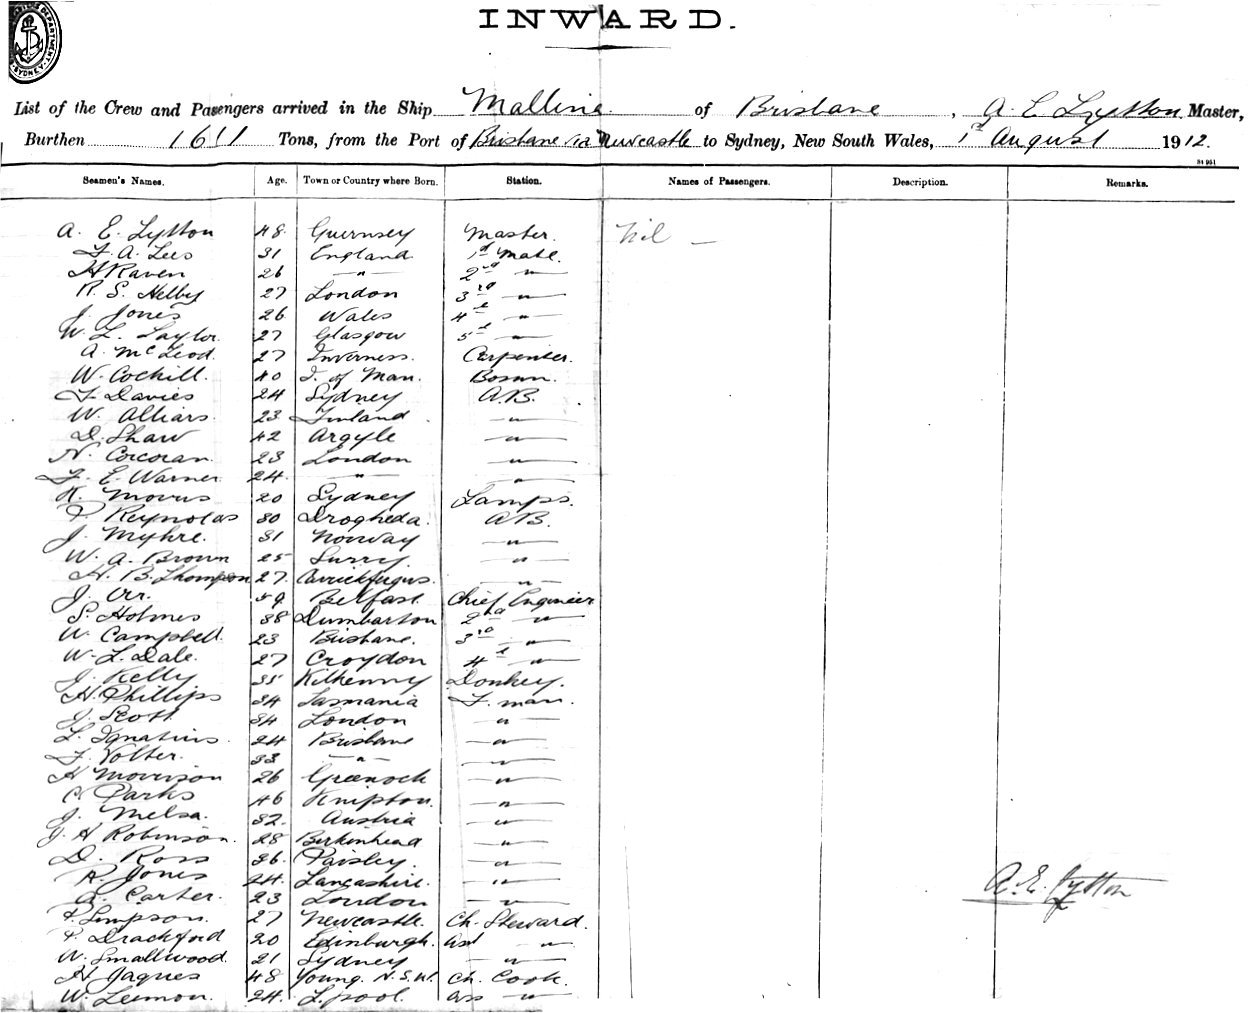 INWARD.
SYDNEY
List of the Crew and Passengers arrived in the Ship Malline of Brisbane, A. E. Lytton Master,
Burthen 1611 Tons, from the Port of Brisbane via Newcastle to Sydney, New South Wales, 1st August 1912.
Seamen's Names. Age. Town or Country where Born. Station. Names of Passengers. Description. Remarks.
A. E. Lytton 48 Guernsey Master. Nil —
F. A. Lees 31 England 1st Mate.
H Raven 26 —"— 2nd —"—
R. S. Helby 27 London 3rd —"—
J. Jones 26 Wales 4th —"—
W. L. Taylor 27 Glasgow 5th —"—
A. McLeod. 27 Inverness. Carpenter.
W. Cockill. 40 I. of Man. Bosun.
F Davies 24 Sydney A.B.
W. Alliars. 23 Finland —"—
D. Shaw 42 Argyle —"—
N. Corcoran. 23 London —"—
F. E. Warner 24. —"— —"—
K. Morris 20 Sydney Lamps.
P Reynolds 30 Drogheda. A.B.
J. Myhre. 31 Norway —"—
W. A. Brown 25 Surry. —"—
H. B. Thompson 27. Carrickfergus. —"—
J. Orr. 59 Belfast. Chief Engineer
S. Holmes 38 Dumbarton 2nd —"—
W. Campbell. 23 Brisbane. 3rd —"—
W. L. Dale. 27 Croydon 4th —"—
J. Kelly 35 Kilkenny Donkey.
H. Phillips 34 Tasmania F. man.
J. Scott 34 London —"—
L. Ignatius. 24 Brisbane —"—
F. Volter. 33 —"— —"—
H Morrison 26 Greenock —"—
C. Parks 46 Knipton. —"—
J. Melsa. 32. Austria —"—
J. H Robinson. 28 Birkinhead —"—
D. Ross 36. Paisley. —"—
R. Jones 24. Lancashire. —"—
A. Carter. 23 London —"—
A. E. Lytton
P. Simpson. 27 Newcastle. Ch. Steward.
P. Drackford 20 Edinburgh. Ast —"—
W. Smallwood. 21 Sydney —"—
H Jaques 48 Young. N.S.W. Ch. Cook.
W. Leemon. 24. L. pool. Ass —"—